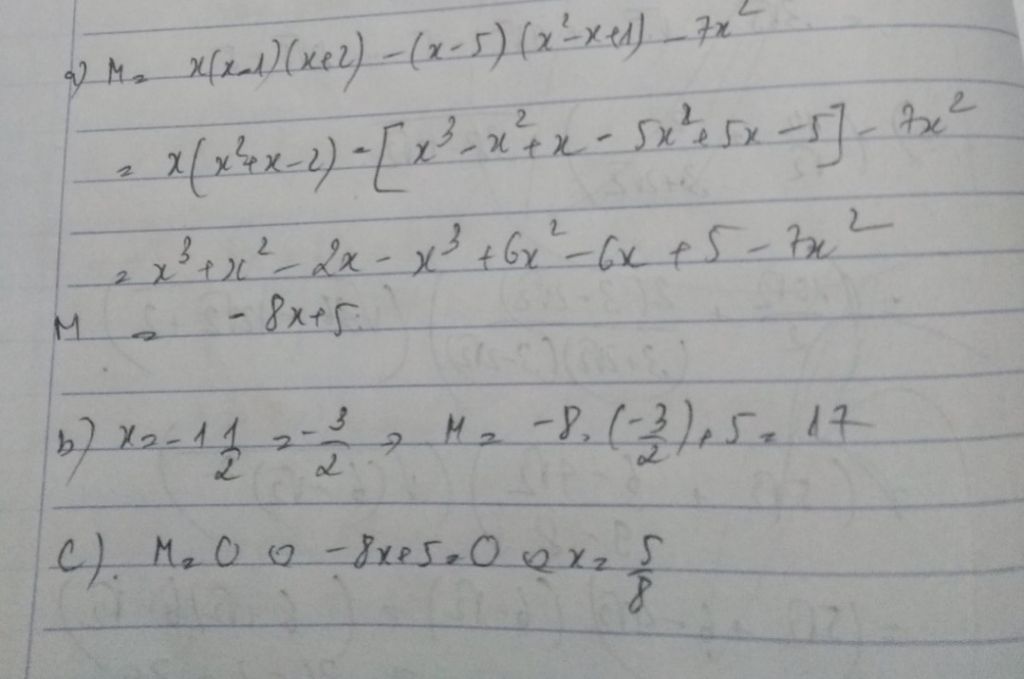 a) M = x(x-1)(x+2) - (x-5)(x²-x+1) - 7x²
= x(x²+x-2) - [x³-x²+x-5x²+5x-5] - 7x²
= x³+x²-2x-x³+6x²-6x+5-7x²
M = -8x+5.
b) x = -1 1/2 = -3/2 => M = -8.(-3/2)+5 = 17
c). M = 0 <=> -8x+5=0 <=> x = 5/8